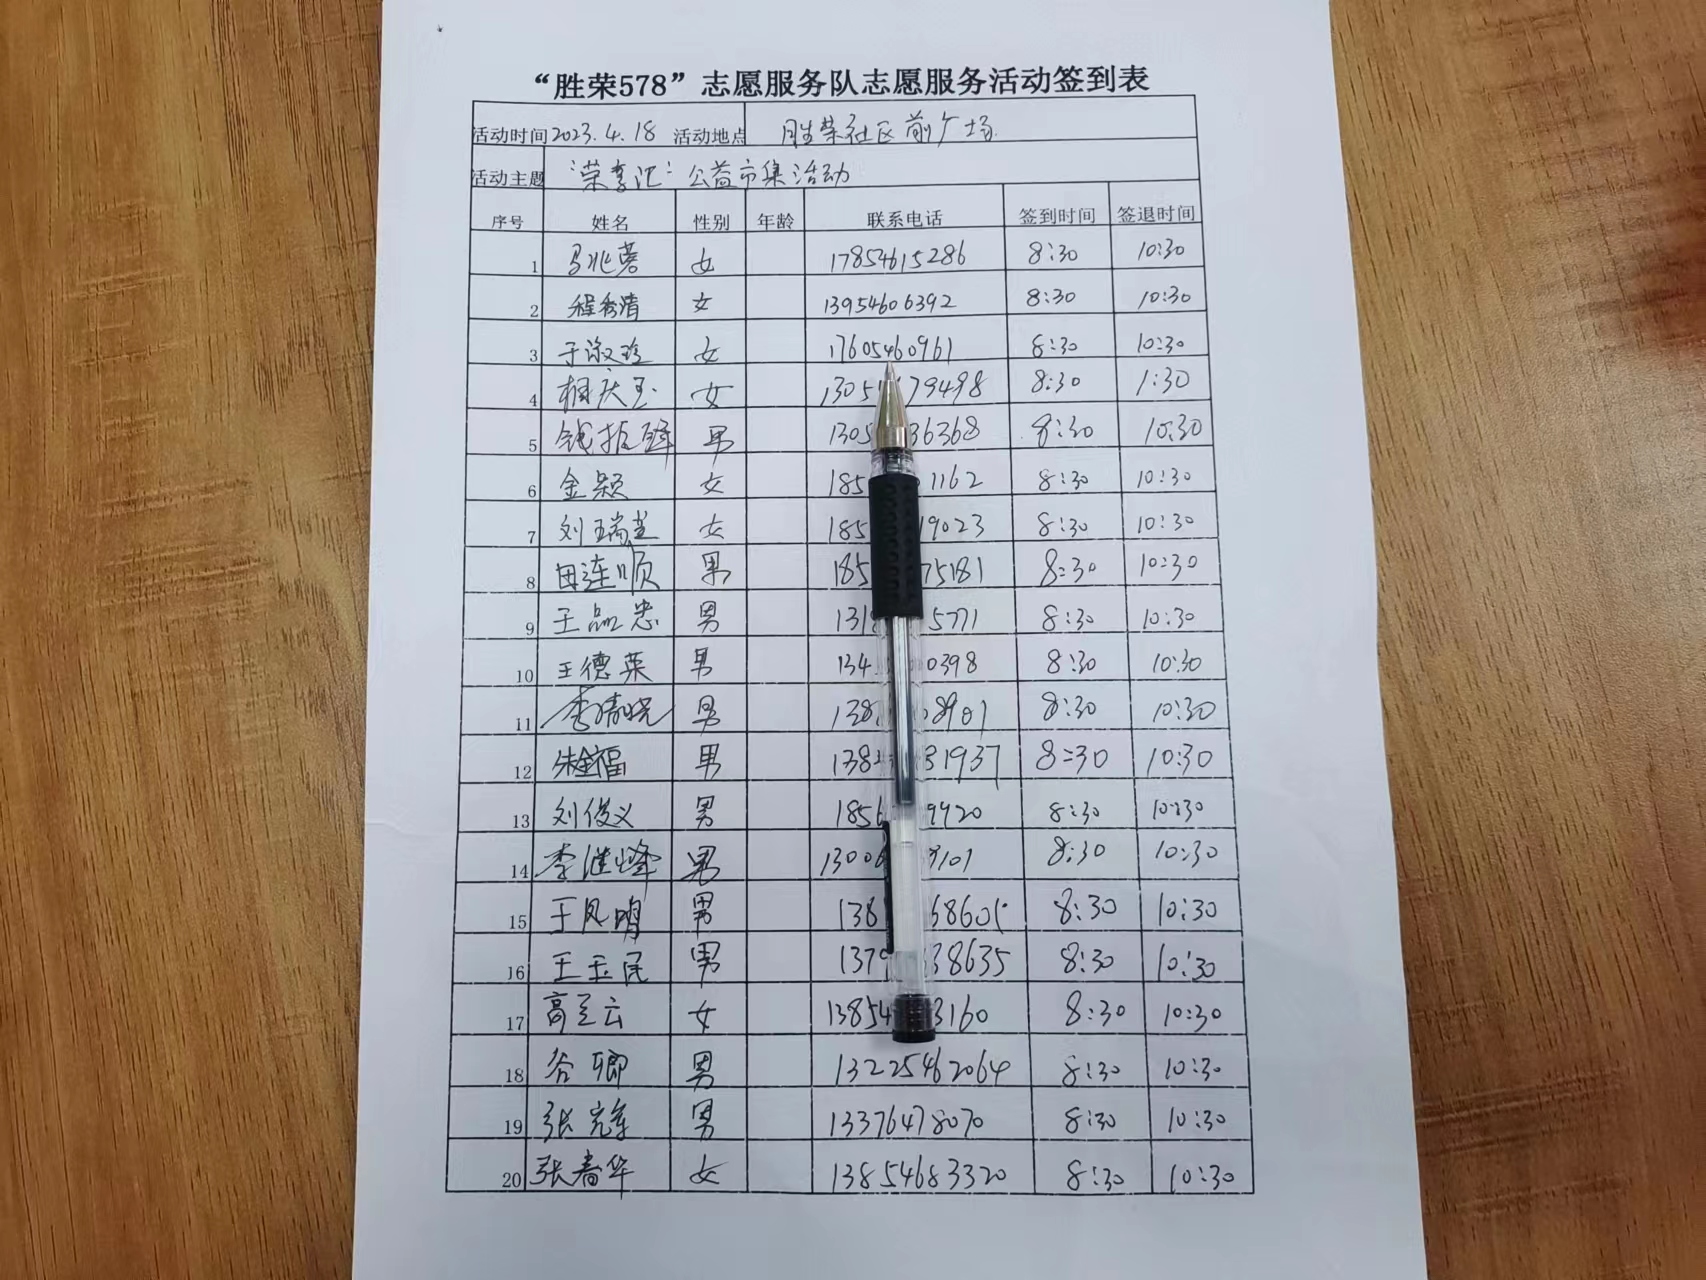 “胜荣578”志愿服务队志愿服务活动签到表
活动时间 2023.4.18 活动地点 胜荣社区前广场
活动主题 “荣享汇”公益市集活动
序号 姓名 性别 年龄 联系电话 签到时间 签退时间
1 马兆蓉 女 17854615286 8:30 10:30
2 程秀清 女 13954606392 8:30 10:30
3 于淑珍 女 17605460961 8:30 10:30
4 庆玉 女 1305 79498 8:30 1:30
5 钱振锋 男 1305 36368 8:30 10:30
6 金颖 女 185 1162 8:30 10:30
7 刘瑞兰 女 185 19023 8:30 10:30
8 田连顺 男 185 75181 8:30 10:30
9 王 忠 男 131 5771 8:30 10:30
10 王德荣 男 134 0398 8:30 10:30
11 李晓 男 138 8901 8:30 10:30
12 朱金福 男 138 31937 8:30 10:30
13 刘俊义 男 185 9420 8:30 10:30
14 李继峰 男 1300 9101 8:30 10:30
15 于凤明 男 138 68605 8:30 10:30
16 王玉民 男 137 38635 8:30 10:30
17 高 云 女 13854 3160 8:30 10:30
18 谷卿 男 13225462064 8:30 10:30
19 张 军 男 13376478070 8:30 10:30
20 张春华 女 13854683320 8:30 10:30